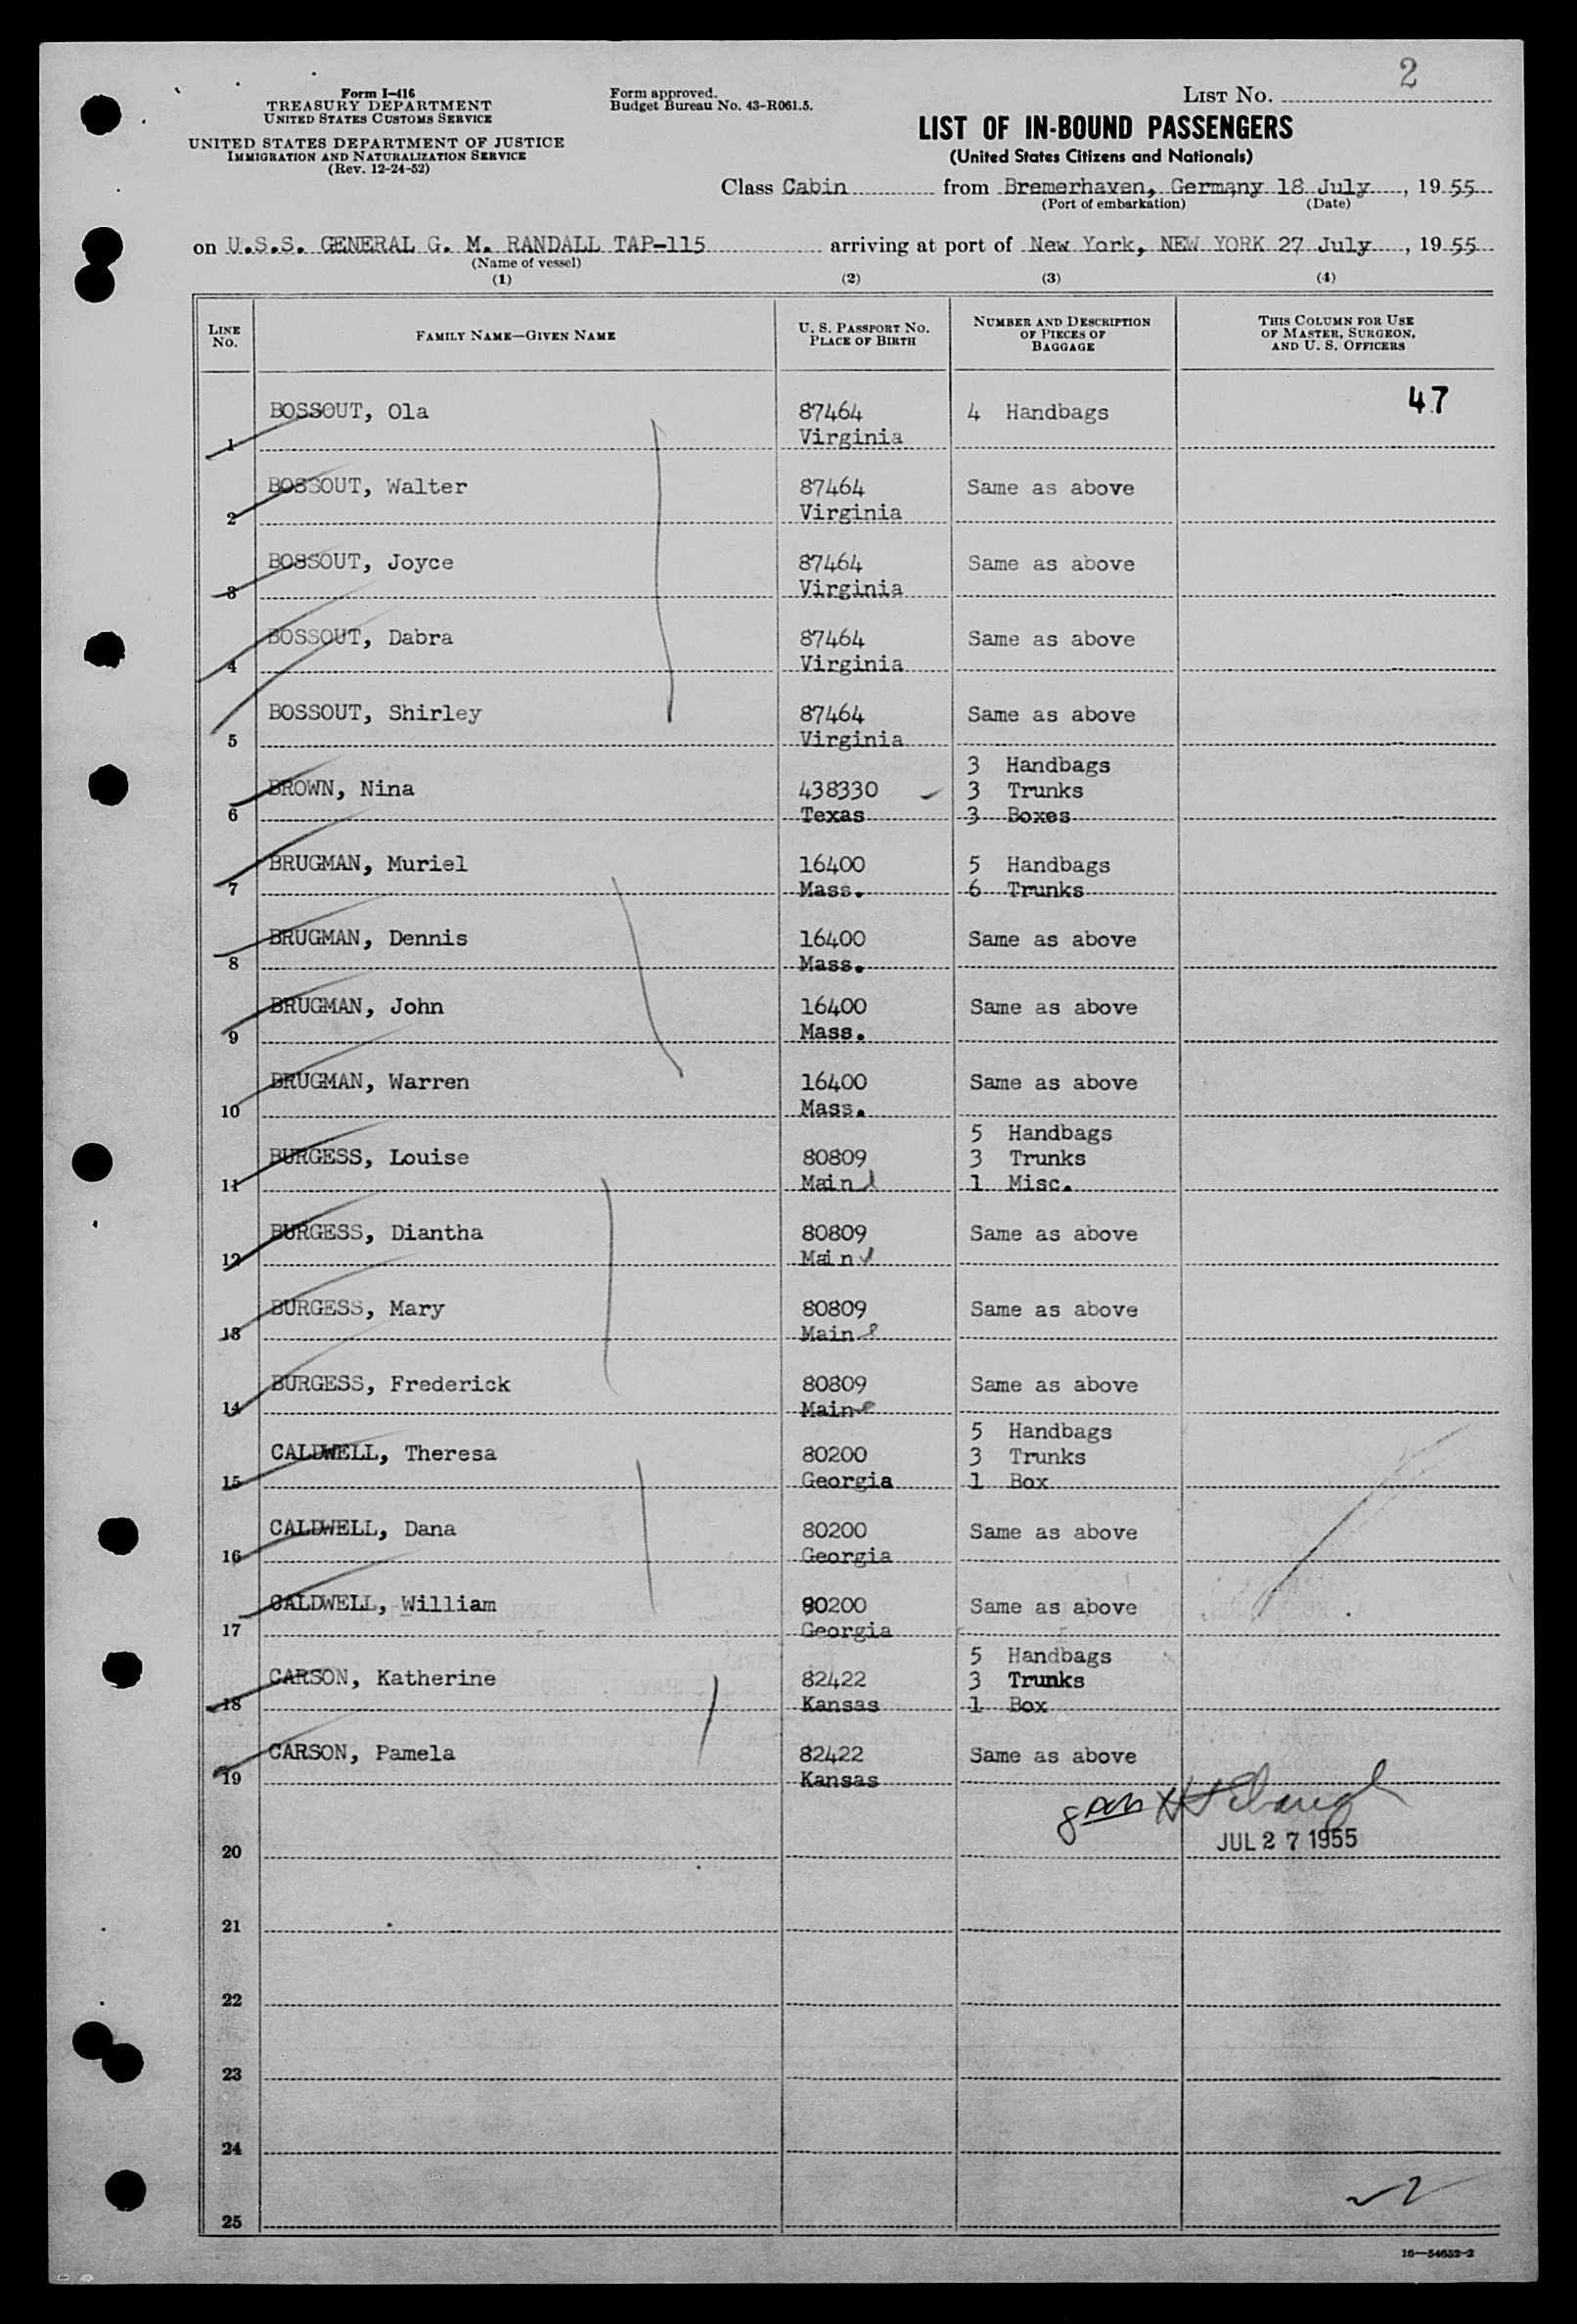 2
Form I-416
TREASURY DEPARTMENT
UNITED STATES CUSTOMS SERVICE
UNITED STATES DEPARTMENT OF JUSTICE
IMMIGRATION AND NATURALIZATION SERVICE
(Rev. 12-24-52)
Form approved.
Budget Bureau No. 43-R061.5.
LIST NO.
LIST OF IN-BOUND PASSENGERS
(United States Citizens and Nationals)
Class Cabin from Bremerhaven, Germany 18 July, 19 55
(Port of embarkation) (Date)
on U.S.S. GENERAL G. M. RANDALL TAP-115 arriving at port of New York, NEW YORK 27 July, 19 55
(Name of vessel)
(1) (2) (3) (4)
LINE NO. FAMILY NAME—GIVEN NAME U. S. PASSPORT NO. PLACE OF BIRTH NUMBER AND DESCRIPTION OF PIECES OF BAGGAGE THIS COLUMN FOR USE OF MASTER, SURGEON, AND U. S. OFFICERS
47
1 BOSSOUT, Ola 87464 4 Handbags
Virginia
2 BOSSOUT, Walter 87464 Same as above
Virginia
3 BOSSOUT, Joyce 87464 Same as above
Virginia
4 BOSSOUT, Dabra 87464 Same as above
Virginia
5 BOSSOUT, Shirley 87464 Same as above
Virginia
3 Handbags
6 BROWN, Nina 438330 3 Trunks
Texas 3 Boxes
7 BRUGMAN, Muriel 16400 5 Handbags
Mass. 6 Trunks
8 BRUGMAN, Dennis 16400 Same as above
Mass.
9 BRUGMAN, John 16400 Same as above
Mass.
10 BRUGMAN, Warren 16400 Same as above
Mass.
5 Handbags
11 BURGESS, Louise 80809 3 Trunks
Maine 1 Misc.
12 BURGESS, Diantha 80809 Same as above
Maine
13 BURGESS, Mary 80809 Same as above
Maine
14 BURGESS, Frederick 80809 Same as above
Maine
5 Handbags
15 CALDWELL, Theresa 80200 3 Trunks
Georgia 1 Box
16 CALDWELL, Dana 80200 Same as above
Georgia
17 CALDWELL, William 80200 Same as above
Georgia
5 Handbags
18 CARSON, Katherine 82422 3 Trunks
Kansas 1 Box
19 CARSON, Pamela 82422 Same as above
Kansas
JUL 27 1955
20
21
22
23
24
25
16—54652-2